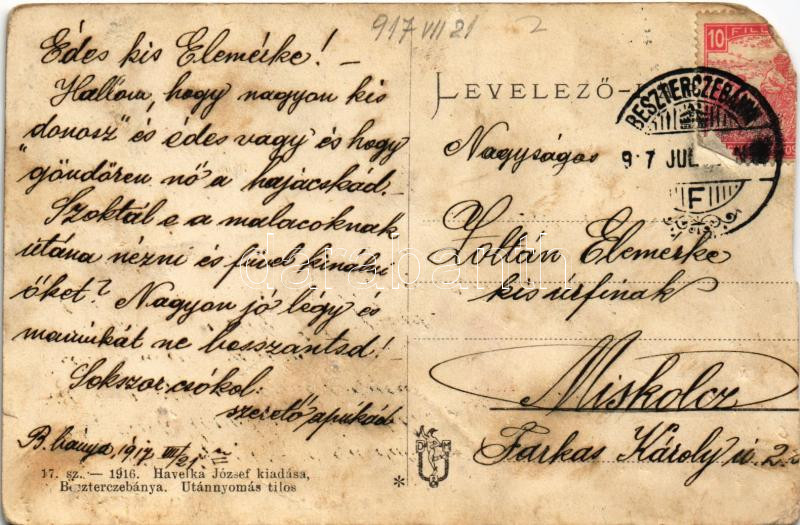 917 VII 21
2
Édes kis Elemérke! –
Hallom, hogy nagyon kis
"donosz" és édes vagy és hogy
"göndören nő a hajácskád. –
Szoktál e a malacoknak
utána nézni és fűvel kinálni
őket? Nagyon jó légy és
maminkát ne bosszantsd!
Sokszor csókol:
szerető apukád
B. bánya, 1917. VII/21.
17. sz. — 1916. Havelka József kiadása,
Beszterczebánya. Utánnyomás tilos
LEVELEZŐ-
10 FILL
BESZTERCZEBÁNYA
9 7 JUL
F
Nagyságos
Zoltán Elemérke
kis úrfinak
Miskolcz
Farkas Károly u. 2
darabanth